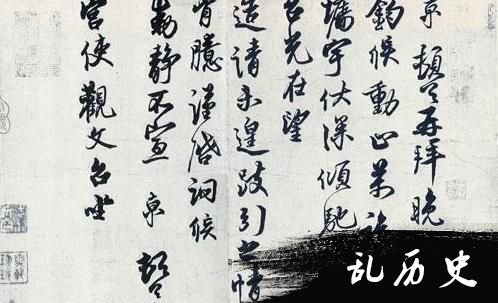 京 頓首再拜晚
鈞候動止萬
牆宇伏深傾馳
台光在望
造請未遑跂引之情
胷臆謹啓詗候
動靜不宣 京 頓首
宮使觀文台坐
乱历史